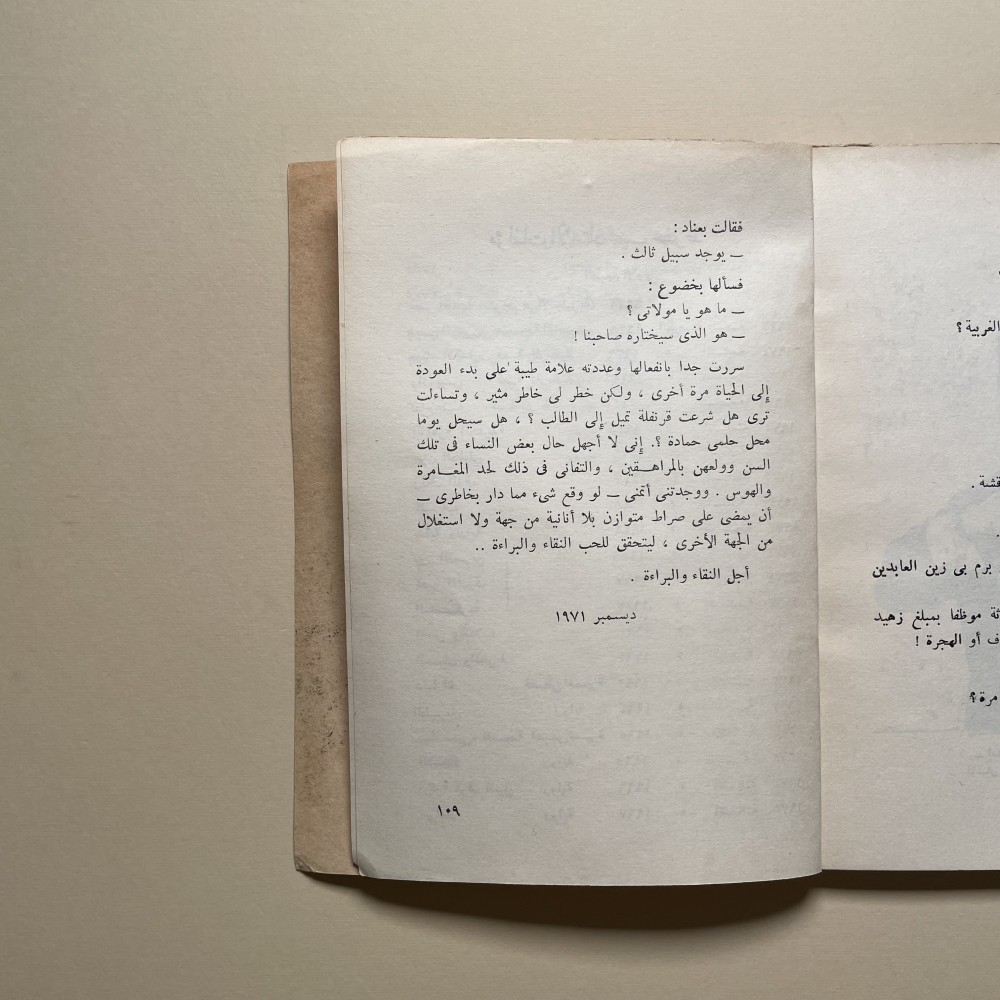 الغربية ؟
قشة .
برم بى زين العابدين
ثة موظفا بمبلغ زهيد
ف أو الهجرة !
مرة ؟
فقالت بعناد :
— يوجد سبيل ثالث .
فسألها بخضوع :
— ما هو يا مولاتى ؟
— هو الذى سيختاره صاحبنا !
سررت جدا بانفعالها وعددته علامة طيبة على بدء العودة
إلى الحياة مرة أخرى ، ولكن خطر لى خاطر مثير ، وتساءلت
ترى هل شرعت قرنفلة تميل إلى الطالب ؟ ، هل سيحل يوما
محل حلمى حمادة ؟. إنى لا أجهل حال بعض النساء فى تلك
السن وولعهن بالمراهـــقين ، والتفانى فى ذلك لحد المغــامرة
والهوس . ووجدتنى أتمنى — لو وقع شىء مما دار بخاطرى —
أن يمضى على صراط متوازن بلا أنانية من جهة ولا استغلال
من الجهة الأخرى ، ليتحقق للحب النقاء والبراءة ..
أجل النقاء والبراءة .
ديسمبر ١٩٧١
١٠٩